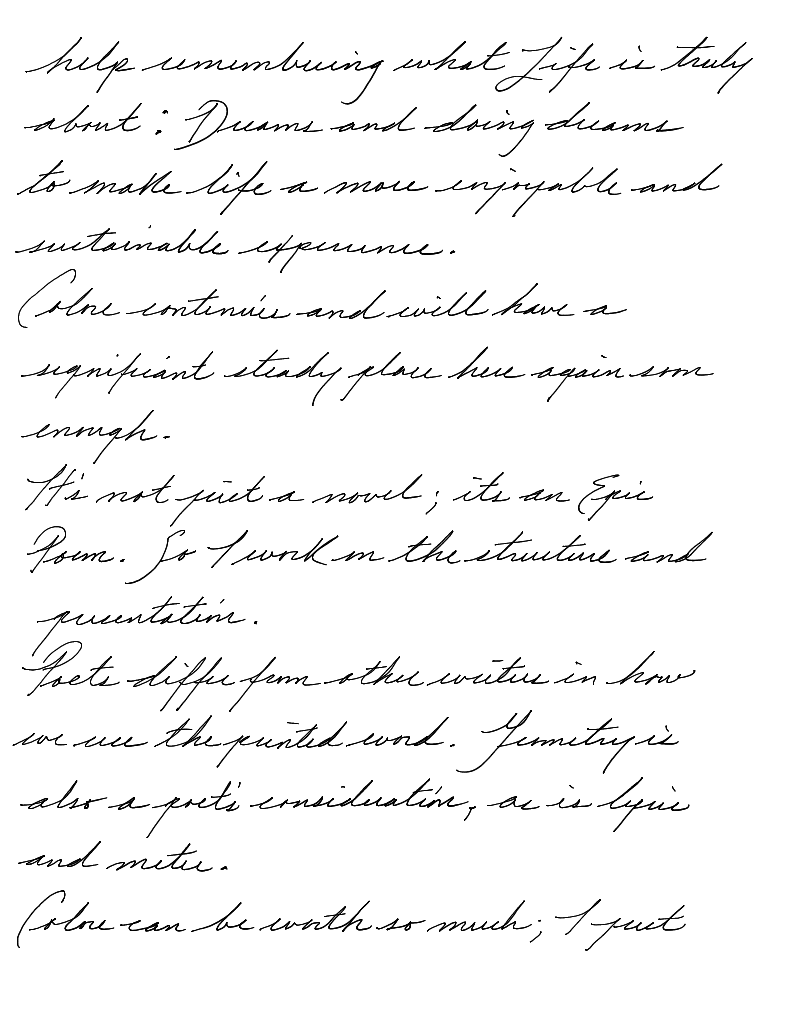 help remembering what Life is truly
about : Dreams and doing dreams
to make life a more enjoyable and
sustainable experience.
Colore continues and will have a
significant steady place here again soon
enough.
It's not just a novel ; its an Epic
Poem. So I work on the structure and
presentation.
Poets differ from other writers in how
we use the printed word. Geometry is
also a poet's consideration, as is lyric
and meter.
Colore can be worth so much ; I just